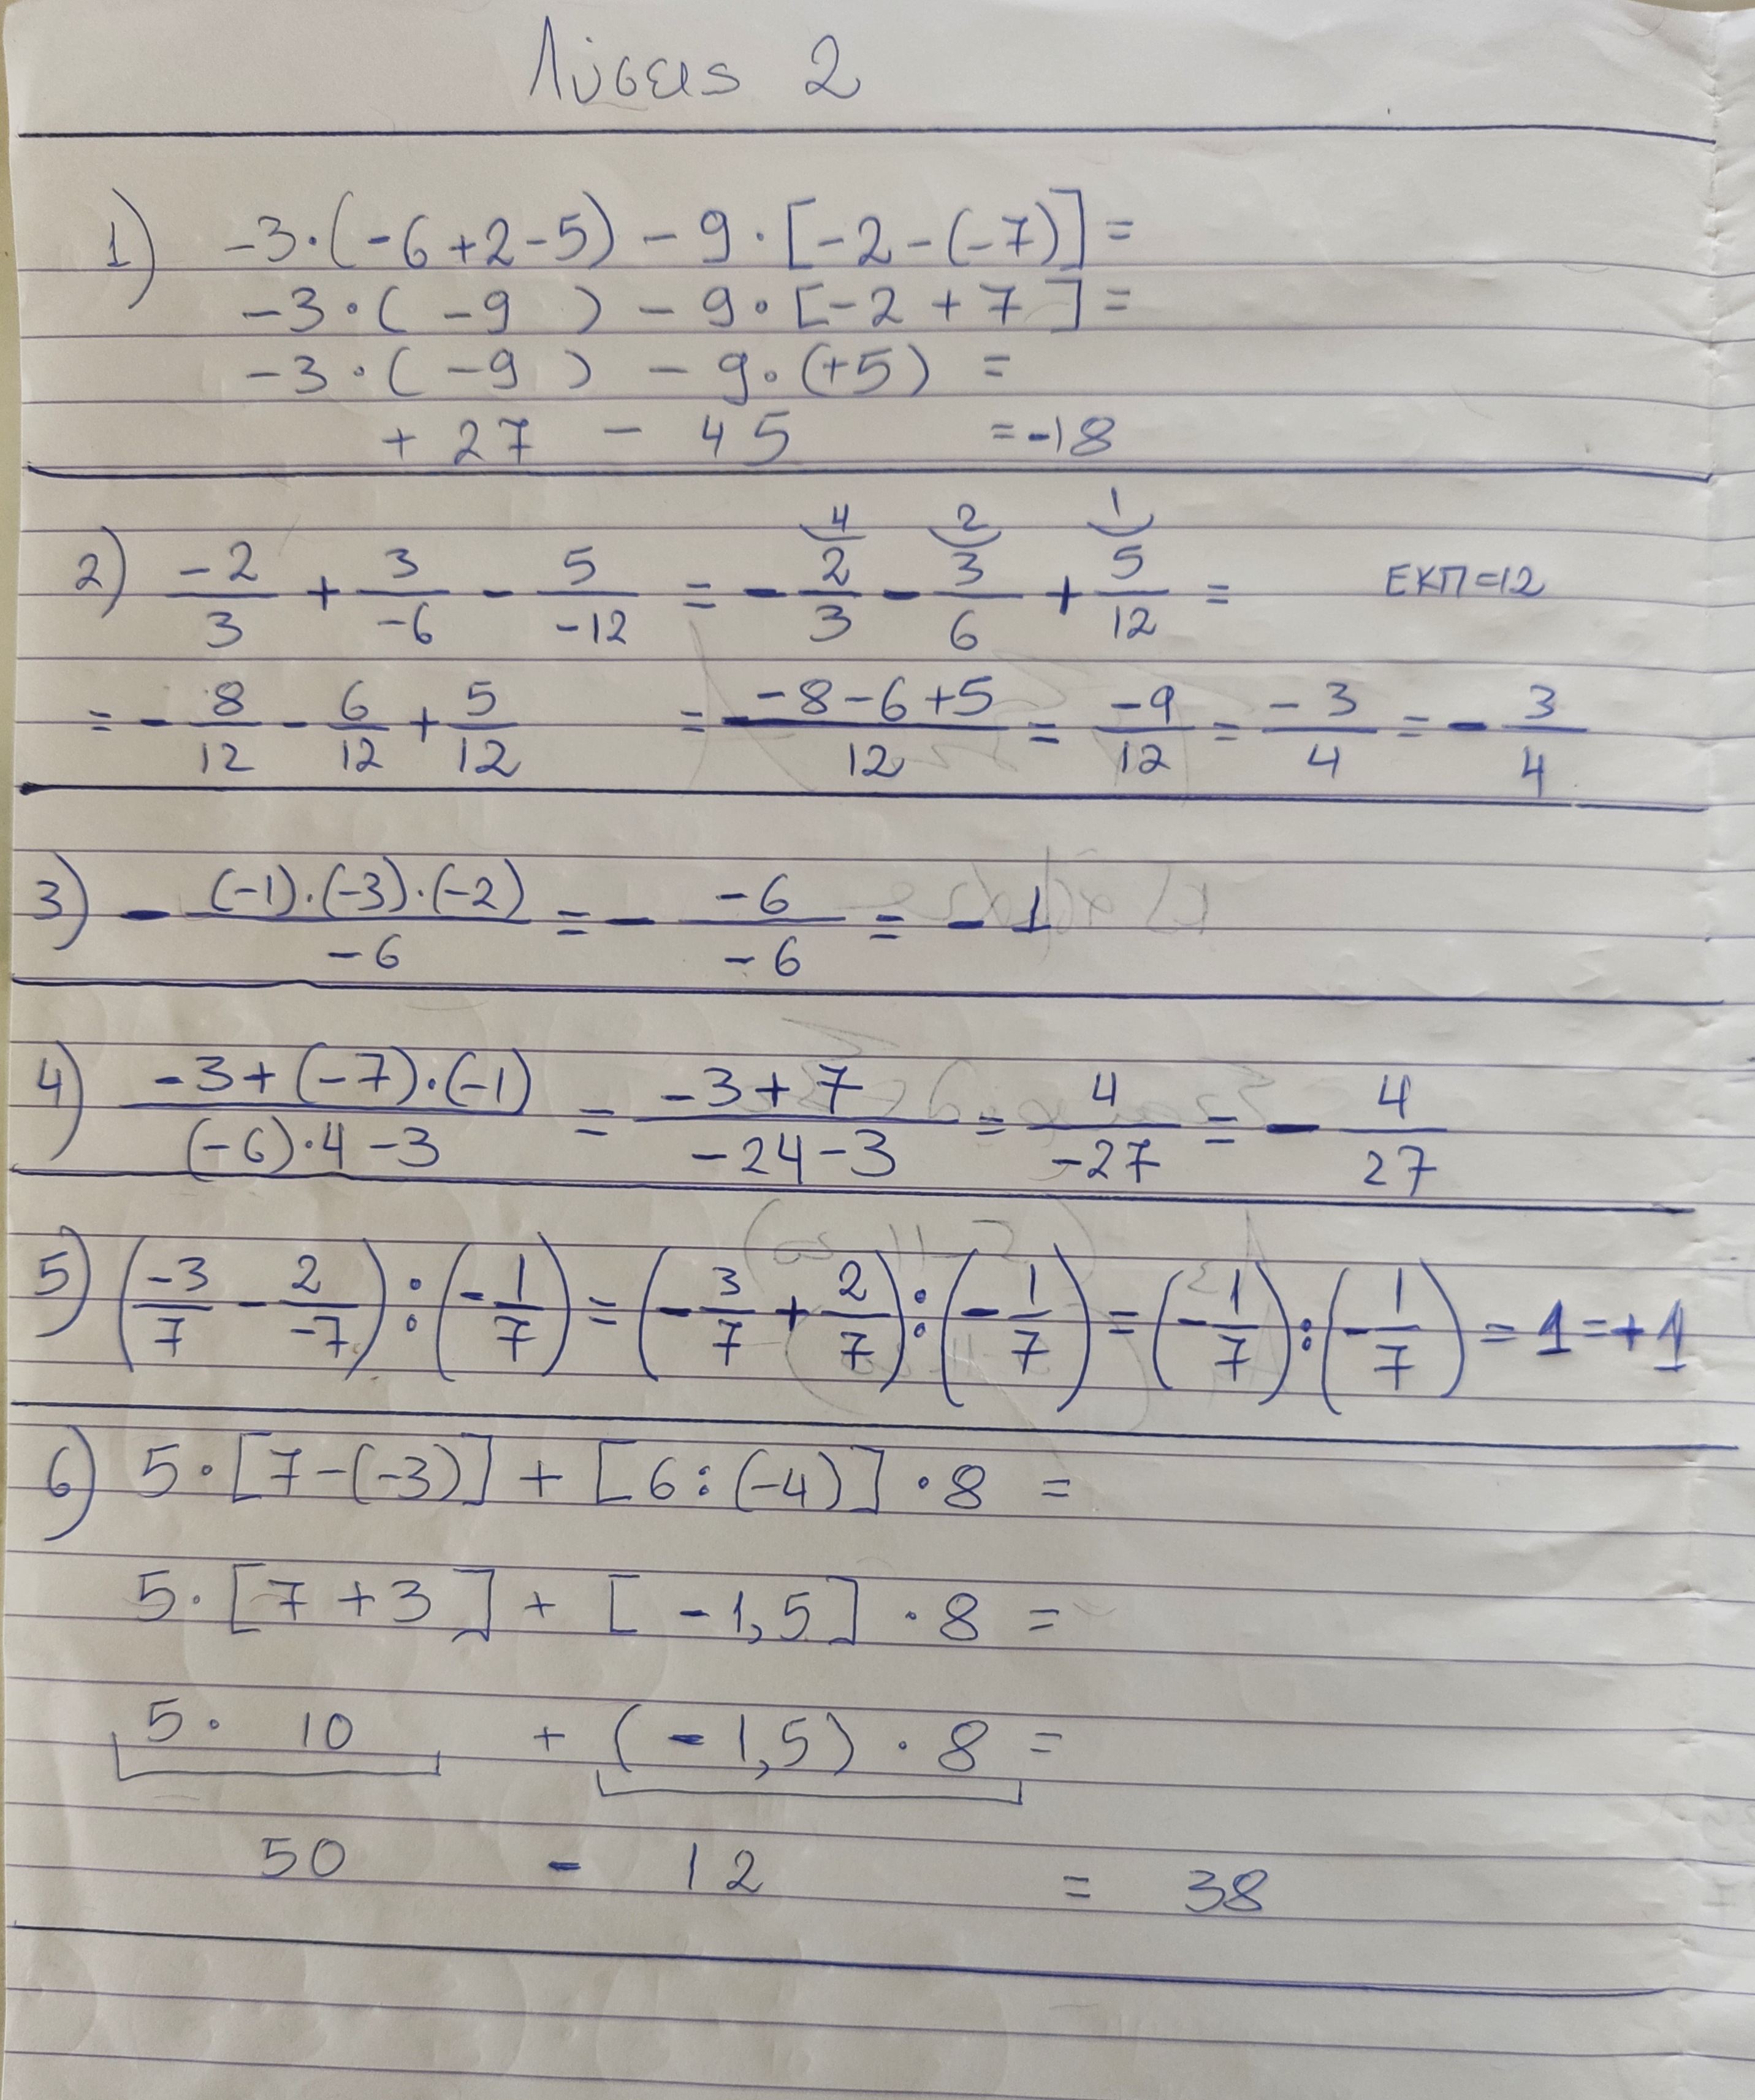 Λύσεις 2
1) -3·(-6+2-5) - 9·[-2-(-7)] =
-3·( -9 ) - 9·[-2 + 7 ] =
-3·( -9 ) - 9·(+5) =
+ 27 - 45 = -18
4 2 1
2) -2/3 + 3/-6 - 5/-12 = - 2/3 - 3/6 + 5/12 = ΕΚΠ=12
= - 8/12 - 6/12 + 5/12 = -8-6+5/12 = -9/12 = -3/4 = - 3/4
3) - (-1)·(-3)·(-2)/-6 = - -6/-6 = - 1
4) -3+(-7)·(-1)/(-6)·4-3 = -3+7/-24-3 = 4/-27 = - 4/27
5) (-3/7 - 2/-7) : (-1/7) = (-3/7 + 2/7) : (-1/7) = (-1/7) : (-1/7) = 1 = +1
6) 5·[7-(-3)] + [6:(-4)]·8 =
5·[7+3] + [-1,5]·8 =
5· 10 + (-1,5)·8 =
50 - 12 = 38